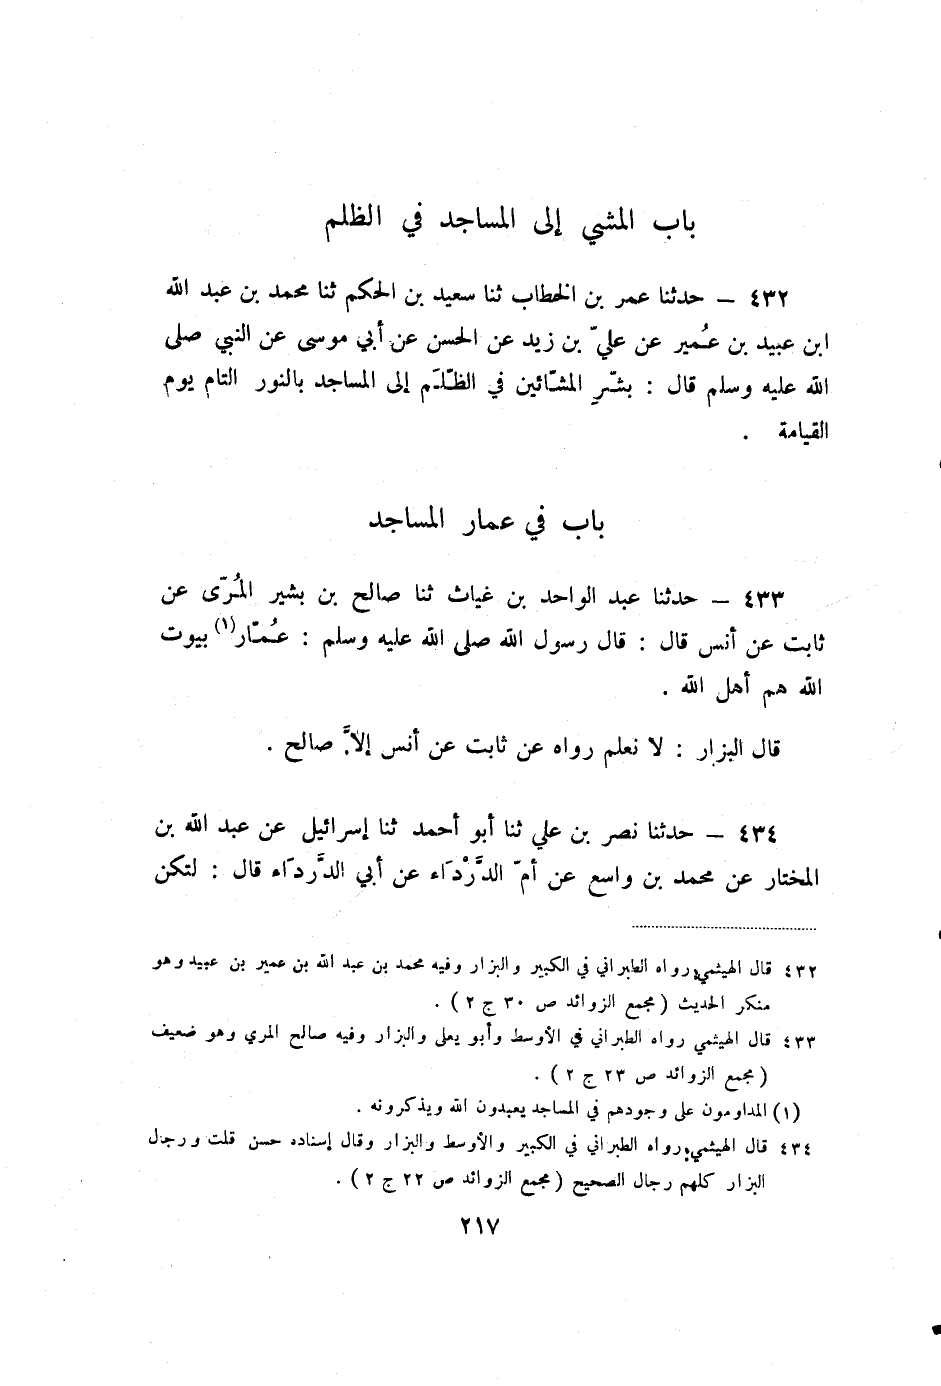 باب المشي إلى المساجد في الظلم
٤٣٢ – حدثنا عمر بن الخطاب ثنا سعيد بن الحكم ثنا محمد بن عبد الله
ابن عبيد بن عُمير عن عليّ بن زيد عن الحسن عن أبي موسى عن النبي صلى
الله عليه وسلم قال : بشّرِ المشّائين في الظُلَم إلى المساجد بالنور التام يوم
القيامة .
باب في عمار المساجد
٤٣٣ – حدثنا عبد الواحد بن غياث ثنا صالح بن بشير المُرّى عن
ثابت عن أنس قال : قال رسول الله صلى الله عليه وسلم : عُمّار(١) بيوت
الله هم أهل الله .
قال البزار : لا نعلم رواه عن ثابت عن أنس إلاَّ صالح .
٤٣٤ – حدثنا نصر بن علي ثنا أبو أحمد ثنا إسرائيل عن عبد الله بن
المختار عن محمد بن واسع عن أمّ الدَّرْدَاء عن أبي الدَّردَاء قال : لتكن
٤٣٢ قال الهيثمي رواه الطبراني في الكبير والبزار وفيه محمد بن عبد الله بن عمير بن عبيد وهو
منكر الحديث ( مجمع الزوائد ص ٣٠ ج ٢ ) .
٤٣٣ قال الهيثمي رواه الطبراني في الأوسط وأبو يعلى والبزار وفيه صالح المري وهو ضعيف
( مجمع الزوائد ص ٢٣ ج ٢ ) .
(١) المداومون على وجودهم في المساجد يعبدون الله ويذكرونه .
٤٣٤ قال الهيثمي رواه الطبراني في الكبير والأوسط والبزار وقال إسناده حسن قلت ورجال
البزار كلهم رجال الصحيح ( مجمع الزوائد ص ٢٢ ج ٢ ) .
٢١٧